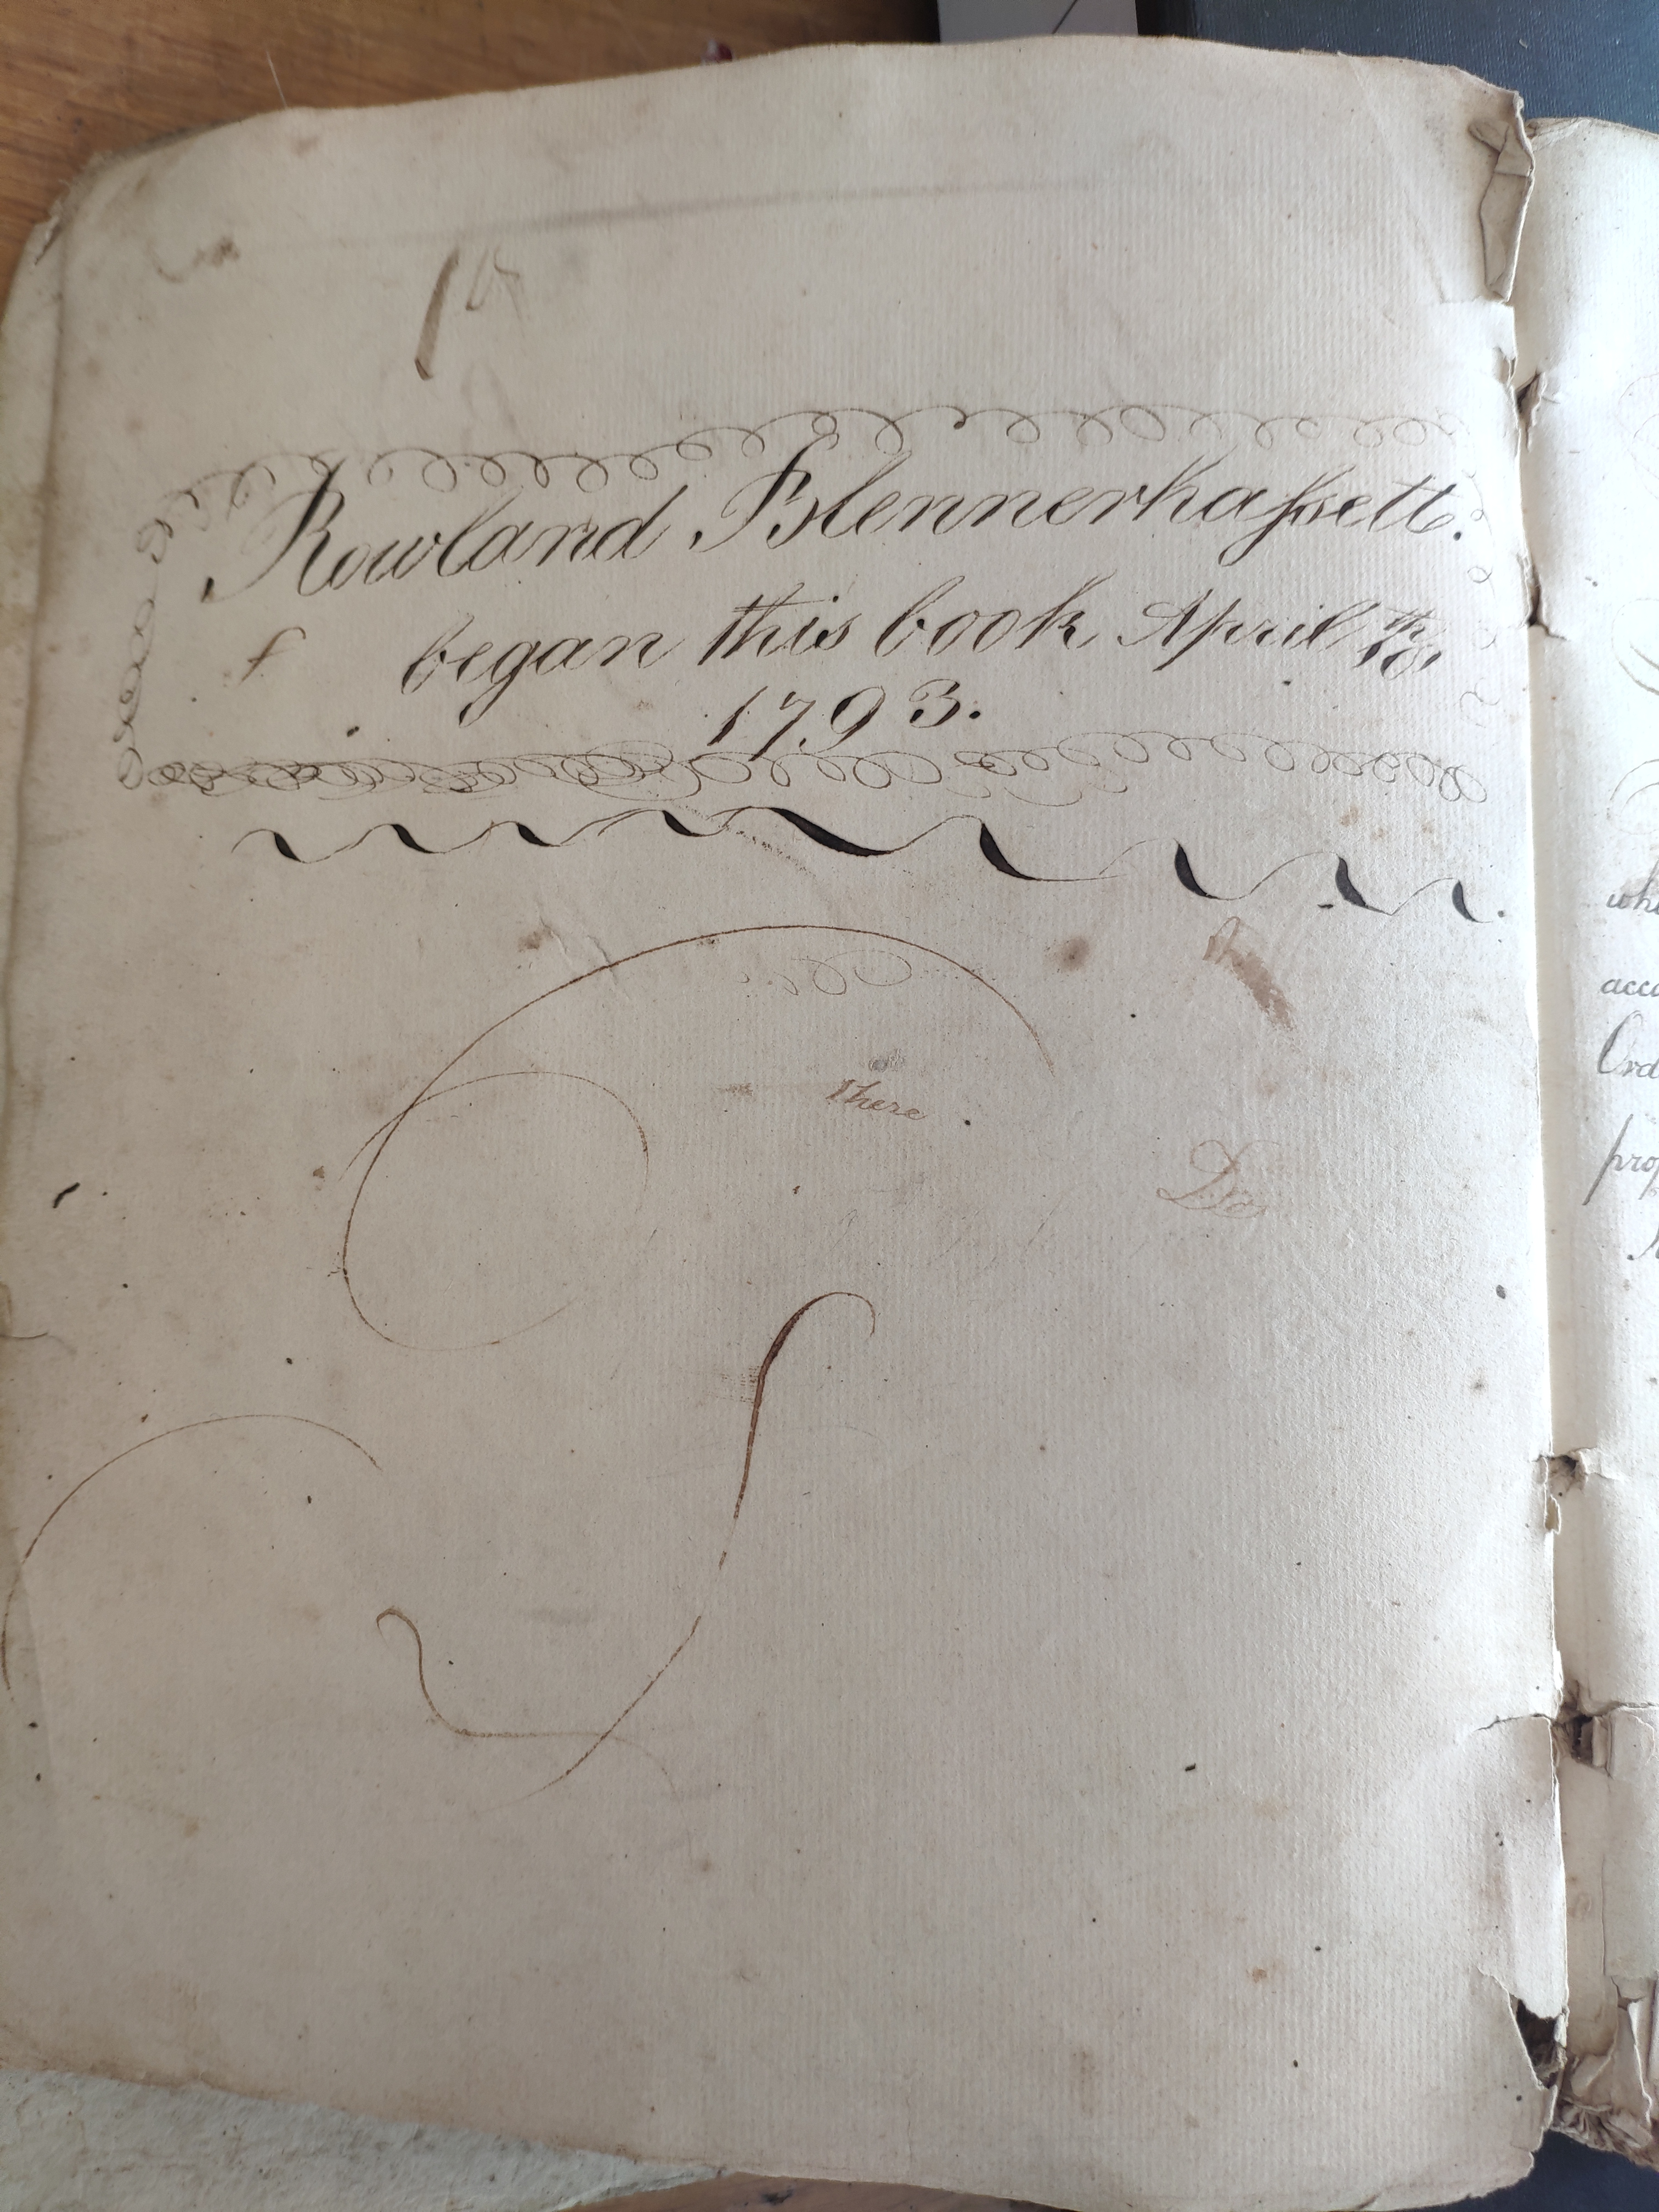 Rowland Blennerhaſsett.
f
began this book April
1793.
there
Do
who
acco
Ord
prop